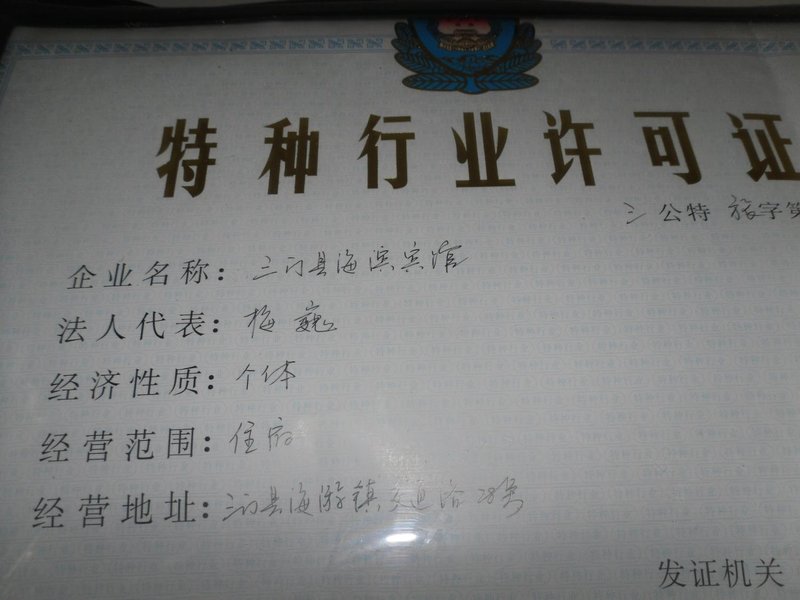 特种行业许可证
三公特旅字第
企业名称：三门县海滨宾馆
法人代表：梅巍
经济性质：个体
经营范围：住宿
经营地址：三门县海游镇交通路28号
发证机关